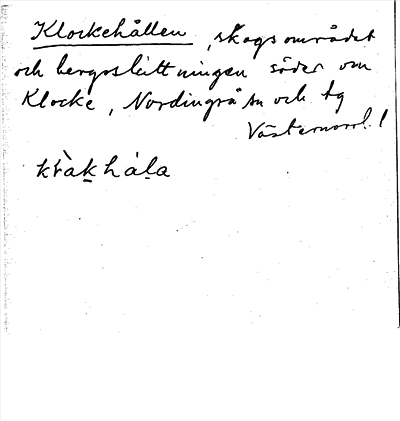 Klockehållen, skogsområdet
och bergsslättningen söder om
Klocke, Nordingrå sn och tg
Västernorrl. l